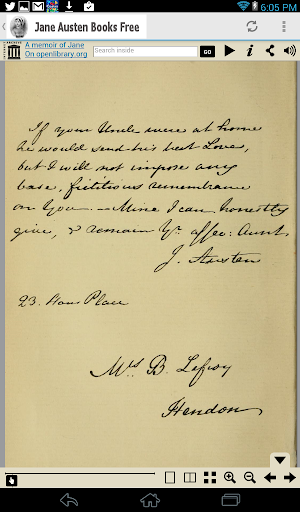 6:05 PM
Jane Austen Books Free
A memoir of Jane
On openlibrary.org
Search inside
GO
If your Uncle were at home
he would send his best Love,
but I will not impose any
base, fictitious remembrance
on You. — Mine I can honestly
give, & remain Yr. affec: Aunt
J. Austen
23. Hans Place
Mrs B. Lefroy
Hendon